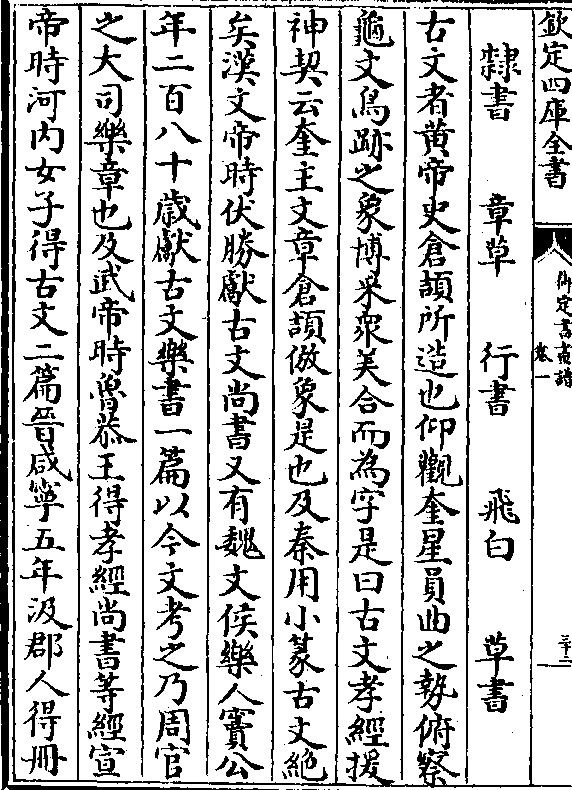 欽定四庫全書
御定書畫譜
卷一
三十二
隸書 章草 行書 飛白 草書
古文者黄帝史倉頡所造也仰觀奎星員曲之勢俯察
龜文鳥跡之象博采衆美合而為字是曰古文孝經援
神契云奎主文章倉頡倣象是也及秦用小篆古文絶
矣漢文帝時伏勝獻古文尚書又有魏文侯樂人竇公
年二百八十歲獻古文樂書一篇以今文考之乃周官
之大司樂章也及武帝時魯恭王得孝經尚書等經宣
帝時河内女子得古文二篇晉咸寧五年汲郡人得冊